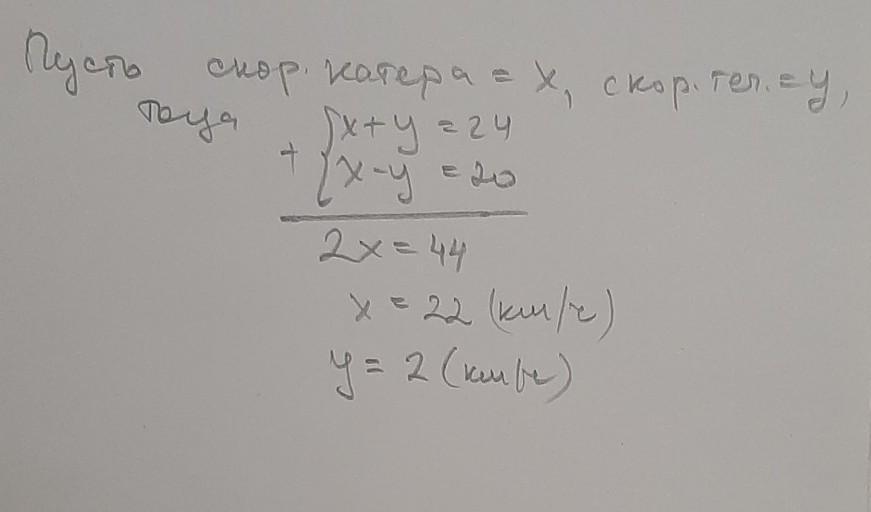 Пусть скор. катера = x, скор. теч. = y,
тогда
{x + y = 24
+ {x - y = 20
2x = 44
x = 22 (км/ч)
y = 2 (км/ч)